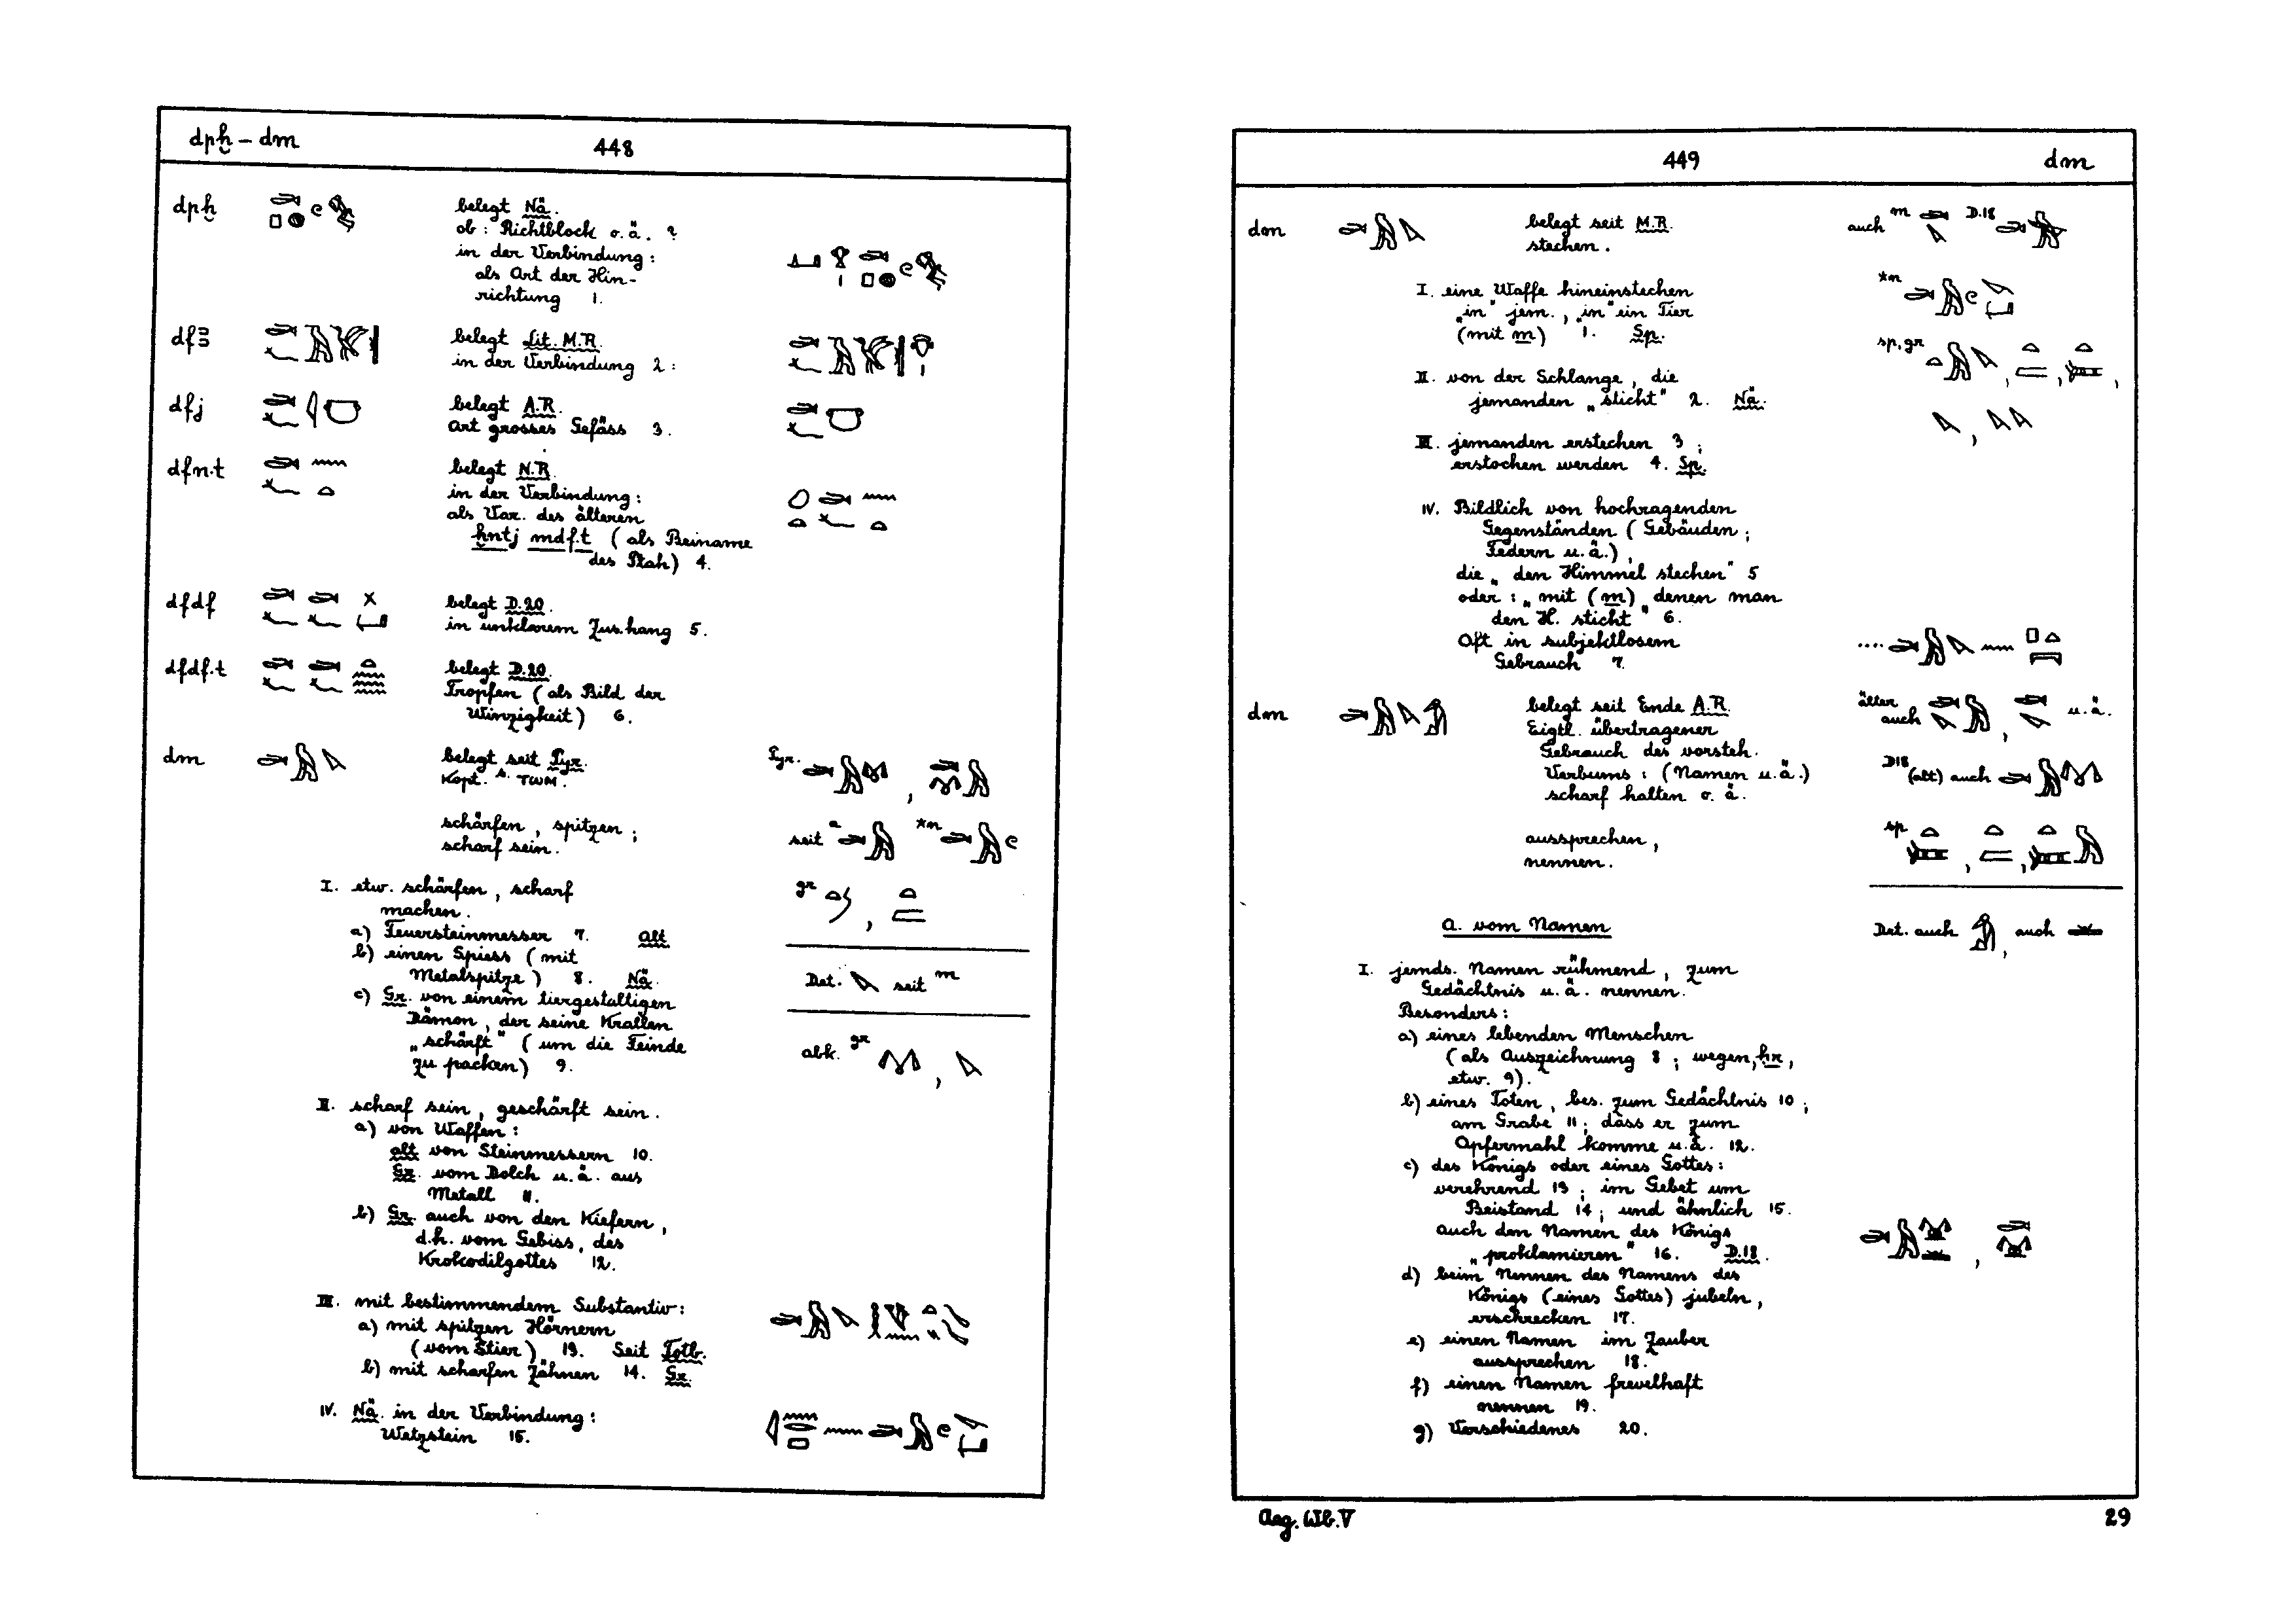 dpḫ – dm 448
dpḫ belegt Nä.
ob: Richtblock o.ä. ?
in der Verbindung:
als Art der Hin-
richtung 1.
dfꜣ belegt Lit. M.R.
in der Verbindung 2:
dfj belegt A.R.
Art grosses Gefäss 3.
dfn.t belegt N.R.
in der Verbindung:
als Var. des älteren
ḫntj mdf.t (als Beiname
des Ptah) 4.
dfdf belegt D.20.
in unklarem Zus.hang 5.
dfdf.t belegt D.20.
Tropfen (als Bild der
Winzigkeit) 6.
dm belegt seit Pyr. Pyr.
Kopt. s. ⲧⲱⲙ.
schärfen, spitzen; seit a *n
scharf sein.
I. etw. schärfen, scharf gr
machen.
a) Feuersteinmesser 7. alt
b) einen Spiess (mit
Metalspitze) 8. Nä. Det. seit m
c) Gr. von einem tiergestaltigen
Dämon, der seine Krallen
„schärft" (um die Feinde abk. gr
zu packen) 9.
II. scharf sein, geschärft sein.
a) von Waffen:
alt von Steinmessern 10.
Gr. vom Dolch u.ä. aus
Metall 11.
b) Gr. auch von den Kiefern,
d.h. vom Gebiss, des
Krokodilgottes 12.
III. mit bestimmendem Substantiv:
a) mit spitzen Hörnern
(vom Stier) 13. Seit Totb.
b) mit scharfen Zähnen 14. Gr.
IV. Nä. in der Verbindung:
Wetzstein 15.
449 dm
dm belegt seit M.R. auch m D.18
stechen.
I. eine Waffe hineinstechen *n
„in" jem., „in" ein Tier
(mit m) 1. Sp. sp, gr
II. von der Schlange, die
jemanden „sticht" 2. Nä.
III. jemanden erstechen 3;
erstochen werden 4. Sp.
IV. Bildlich von hochragenden
Gegenständen (Gebäuden;
Federn u.ä.),
die „den Himmel stechen" 5
oder: „mit (m) denen man
den H. sticht" 6.
Oft in subjektlosem
Gebrauch 7.
dm belegt seit Ende A.R. älter auch u.ä.
Eigtl. übertragener
Gebrauch des vorsteh.
Verbums: (Namen u.ä.) D18 (alt) auch
scharf halten o. ä.
aussprechen, sp
nennen.
a. vom Namen Det. auch , auch
I. jemds. Namen rühmend, zum
Gedächtnis u.ä. nennen.
Besonders:
a) eines lebenden Menschen
(als Auszeichnung 8; wegen, ḥr,
etw. 9).
b) eines Toten, bes. zum Gedächtnis 10;
am Grabe 11; dass er zum
Opfermahl komme u.ä. 12.
c) des Königs oder eines Gottes:
verehrend 13; im Gebet um
Beistand 14; und ähnlich 15.
auch den Namen des Königs
„proklamieren" 16. D.18.
d) beim Nennen des Namens des
Königs (eines Gottes) jubeln,
erschrecken 17.
e) einen Namen im Zauber
aussprechen 18.
f) einen Namen frevelhaft
nennen 19.
g) Verschiedenes 20.
Aeg. Wb. V 29